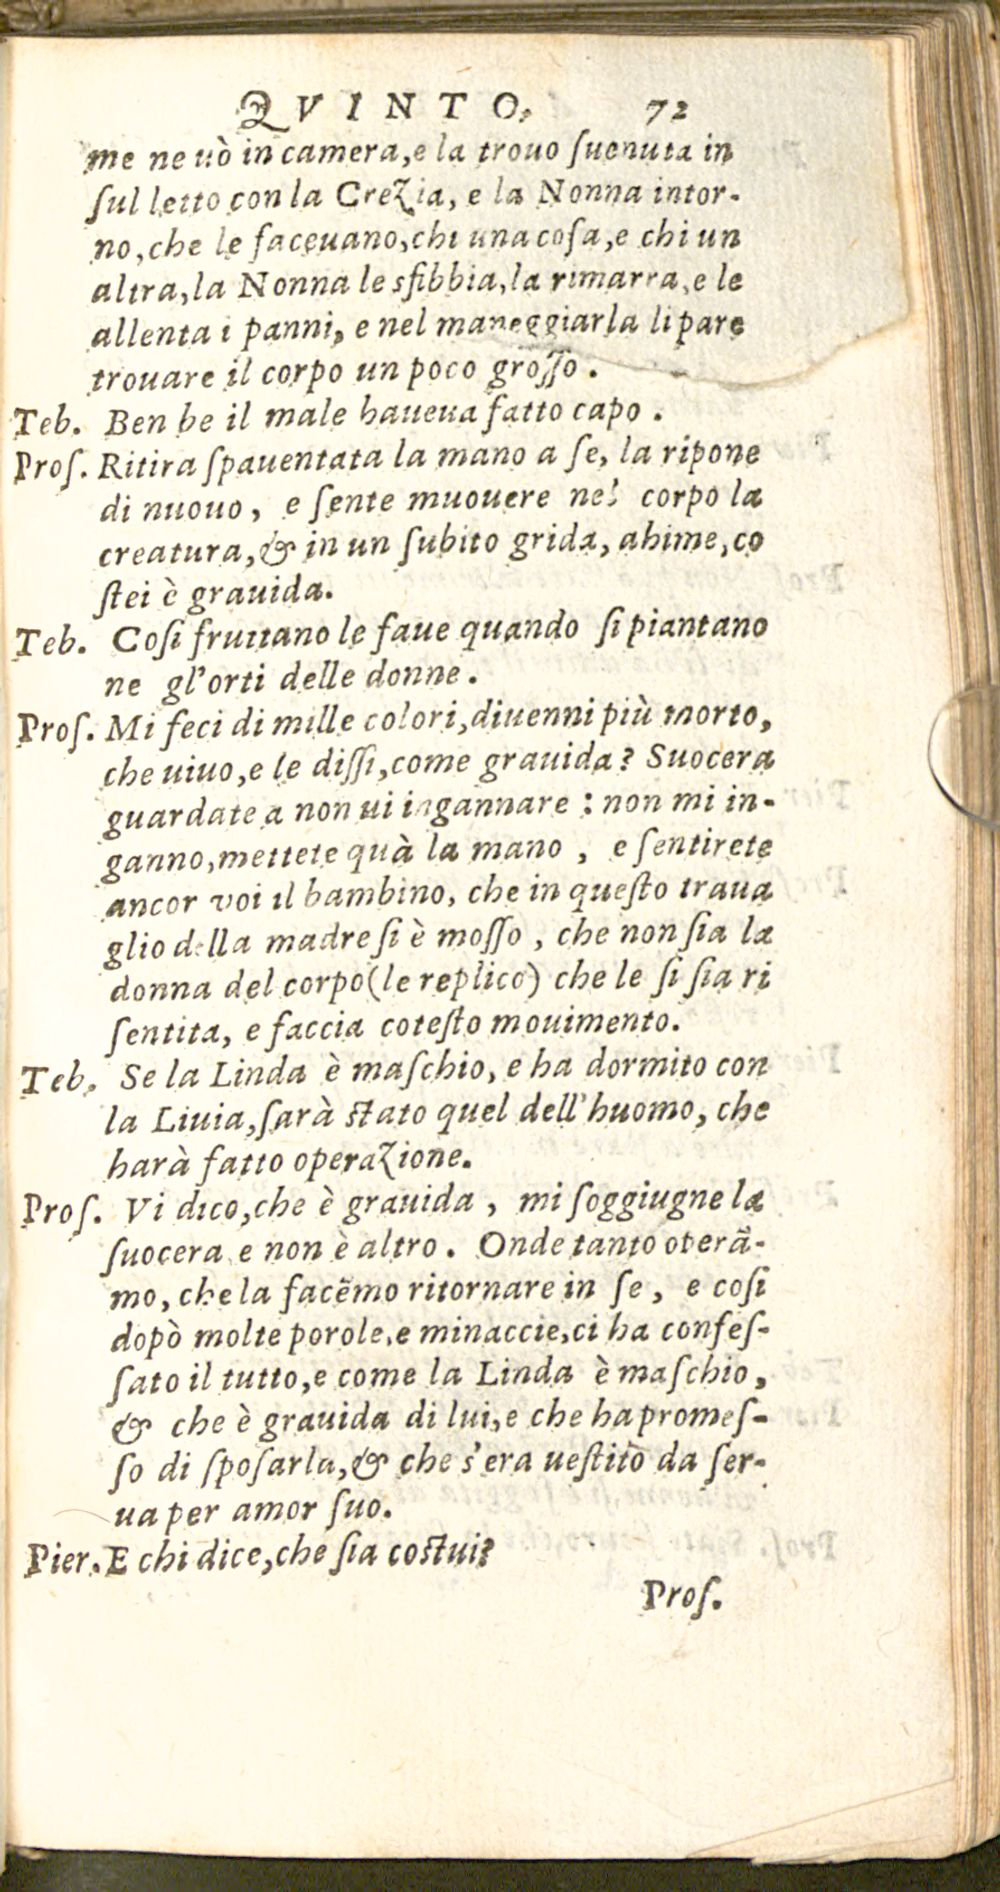 QVINTO. 72
me ne uò in camera, e la trouo ſuenuta in
ſul letto con la Crezia, e la Nonna intor-
no, che le faceuano, chi una coſa, e chi un
altra, la Nonna le sfibbia, la rimarra, e le
allenta i panni, e nel maneggiarla li pare
trouare il corpo un poco groſſo.
Teb. Ben be il male haueua fatto capo.
Proſ. Ritira ſpauentata la mano a ſe, la ripone
di nuouo, e ſente muouere nel corpo la
creatura, & in un ſubito grida, ahime, co
ſtei è grauida.
Teb. Coſi fruttano le faue quando ſi piantano
ne gl'orti delle donne.
Proſ. Mi feci di mille colori, diuenni più morto,
che uiuo, e le diſſi, come grauida? Suocera
guardate a non ui ingannare: non mi in-
ganno, mettete quà la mano, e ſentirete
ancor voi il bambino, che in queſto traua
glio della madre ſi è moſſo, che non ſia la
donna del corpo (le replico) che le ſi ſia ri
ſentita, e faccia coteſto mouimento.
Teb. Se la Linda è maſchio, e ha dormito con
la Liuia, ſarà ſtato quel dell'huomo, che
harà fatto operazione.
Proſ. Vi dico, che è grauida, mi ſoggiugne la
ſuocera e non è altro. Onde tanto oterã-
mo, che la facẽmo ritornare in ſe, e coſi
dopò molte porole, e minaccie, ci ha confeſ-
ſato il tutto, e come la Linda è maſchio,
& che è grauida di lui, e che ha promeſ-
ſo di ſpoſarla, & che s'era ueſtito da ſer-
ua per amor ſuo.
Pier. E chi dice, che ſia coſtui?
Proſ.